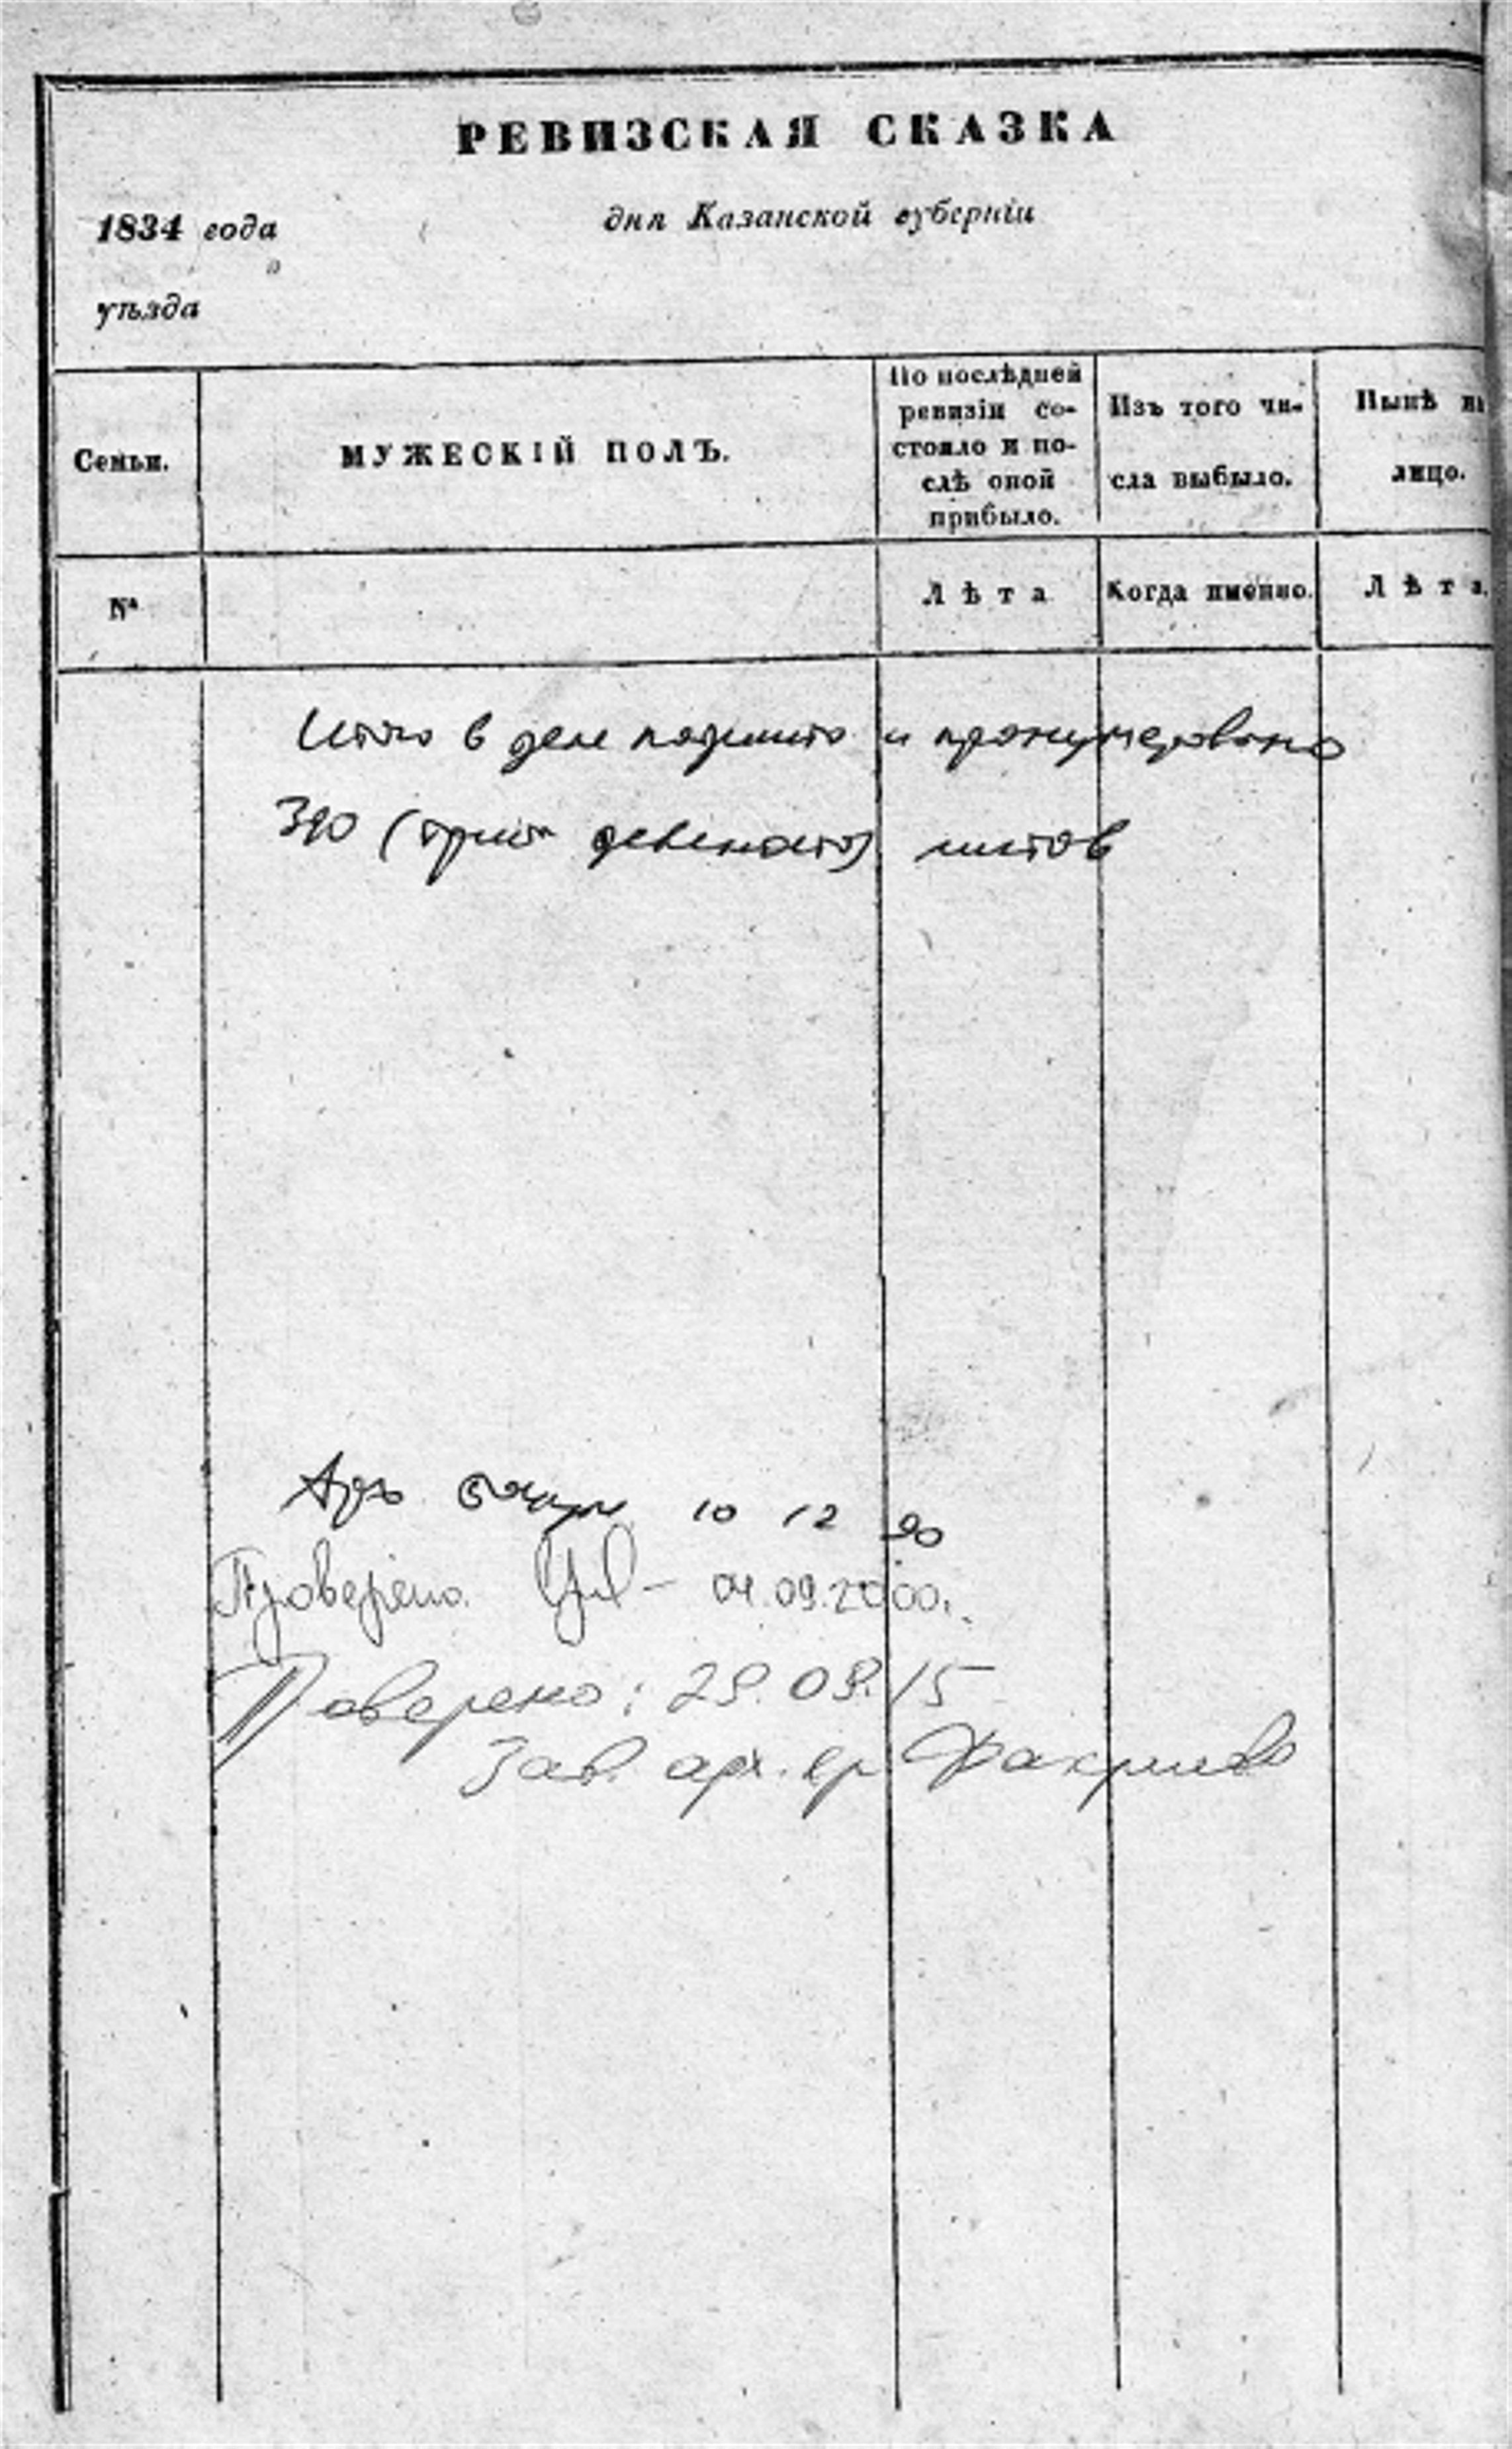 РЕВИЗСКАЯ СКАЗКА
1834 года
дня Казанской губерніи
уѣзда
Семьи.
МУЖЕСКІЙ ПОЛЪ.
По послѣдней
ревизіи со-
стояло и по-
слѣ оной
прибыло.
Изъ того чи-
сла выбыло.
Нынѣ на
лицо.
№
Лѣта
Когда именно.
Лѣта.
Итого в деле подшито и пронумеровано
390 (триста девяносто) листов
Арх 10 12 90
Проверено 04.09.2000г.
Проверено: 29.09.15
Зав. арх. хр. Фахриева